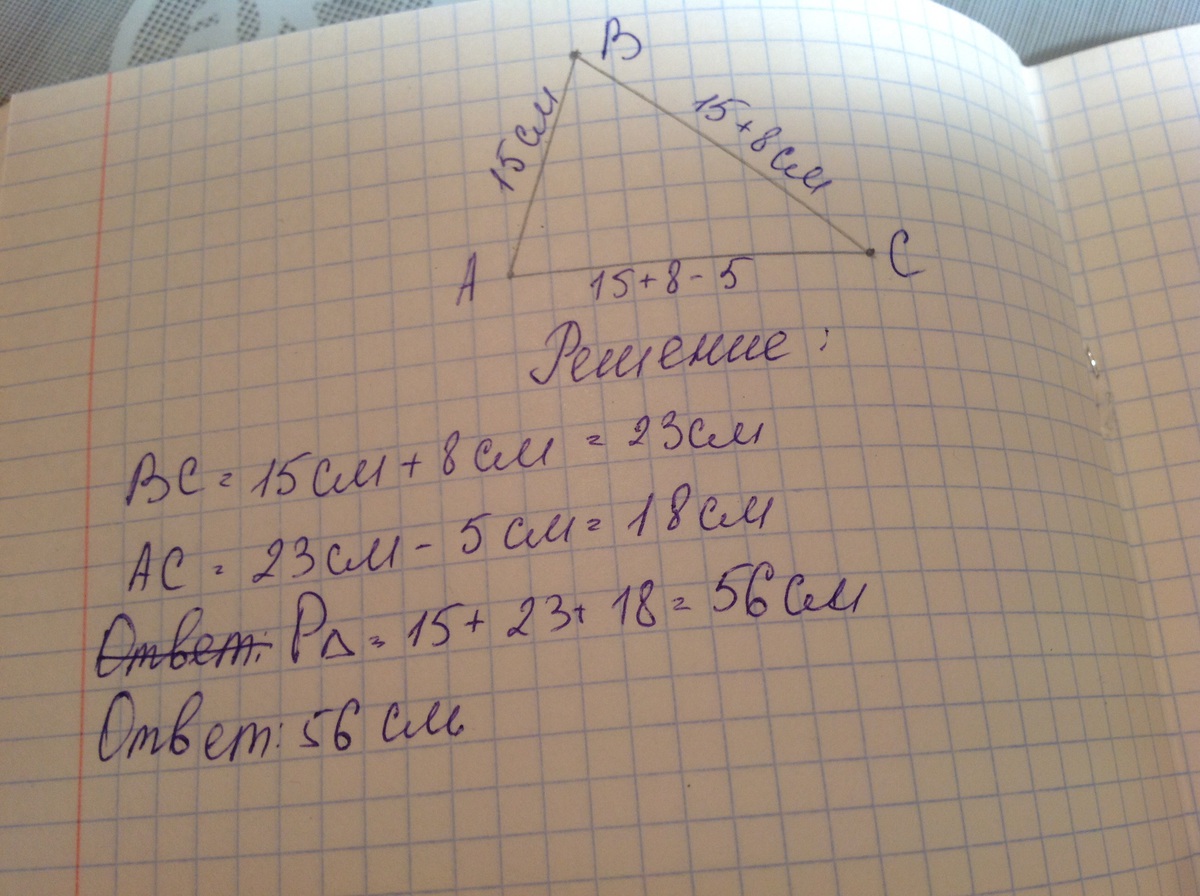 B
15 см
15+8 см
A
C
15+8-5
Решение:
BC = 15 см + 8 см = 23 см
AC = 23 см - 5 см = 18 см
Ответ: P△ = 15 + 23 + 18 = 56 см
Ответ: 56 см.